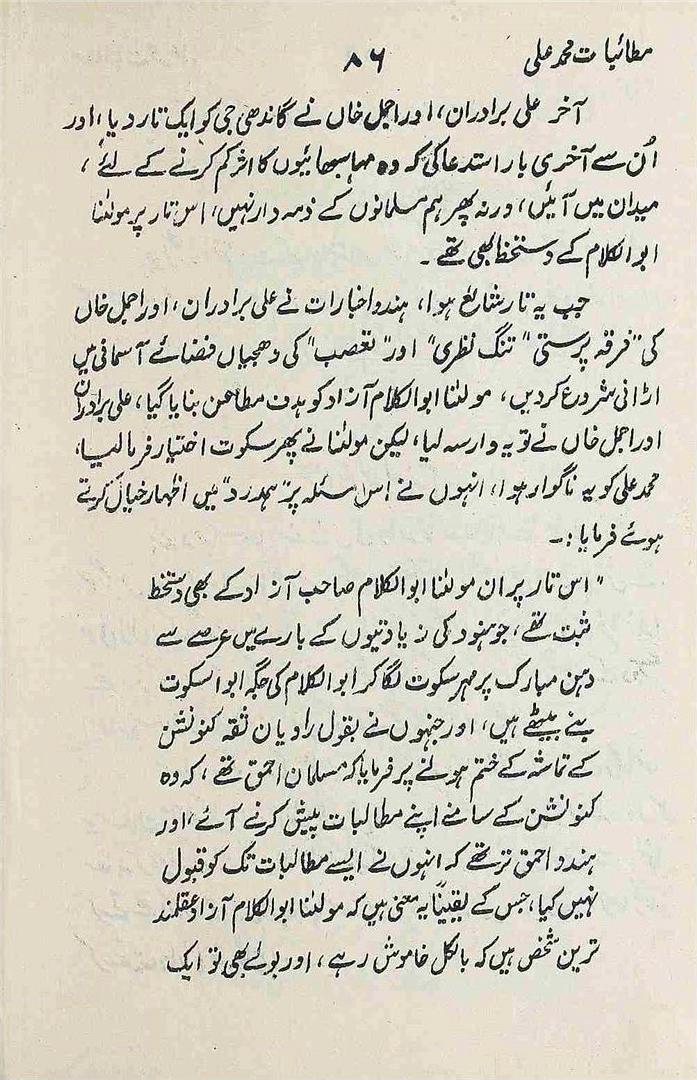 مطائبات محمد علی
۸۶
آخر علی برادران، اور اجمل خاں نے گاندھی جی کو ایک تار دیا، اور
اُن سے آخری بار استدعا کی کہ وہ مہاسبھائیوں کا اثر کم کرنے کے لئے،
میدان میں آئیں، ورنہ پھر ہم مسلمانوں کے ذمہ دار نہیں، اس تار پر مولٰنا
ابوالکلام کے دستخط بھی تھے۔
جب یہ تار شایع ہوا، ہندو اخبارات نے علی برادران، اور اجمل خاں
کی "فرقہ پرستی" "تنگ نظری" اور "تعصب" کی دھجیاں فضائے آسمانی میں
اڑانی شروع کردیں، مولٰنا ابوالکلام آزاد کو ہدف مطاعن بنایا گیا، علی برادران
اور اجمل خاں نے تو یہ وار سہ لیا، لیکن مولٰنا نے پھر سکوت اختیار فرما لیا،
محمد علی کو یہ ناگوار ہوا، انہوں نے اس مسئلہ پر "ہمدرد" میں اظہار خیال کرتے
ہوئے فرمایا:۔
"اس تار پر ان مولٰنا ابوالکلام صاحب آزاد کے بھی دستخط
ثبت تھے، جو ہنود کی زیادتیوں کے بارے میں عرصے سے
دہن مبارک پر مہر سکوت لگا کر ابوالکلام کی جگہ ابوالسکوت
بنے بیٹھے ہیں، اور جنہوں نے بقول راویان ثقہ کنونشن
کے تماشہ کے ختم ہونے پر فرمایا کہ مسلمان احمق تھے، کہ وہ
کنونشن کے سامنے اپنے مطالبات پیش کرنے آئے، اور
ہندو احمق تر تھے کہ انہوں نے ایسے مطالبات تک کو قبول
نہیں کیا، جس کے یقیناً یہ معنی ہیں کہ مولٰنا ابوالکلام آزاد عقلمند
ترین شخص ہیں کہ بالکل خاموش رہے، اور بولے بھی تو ایک